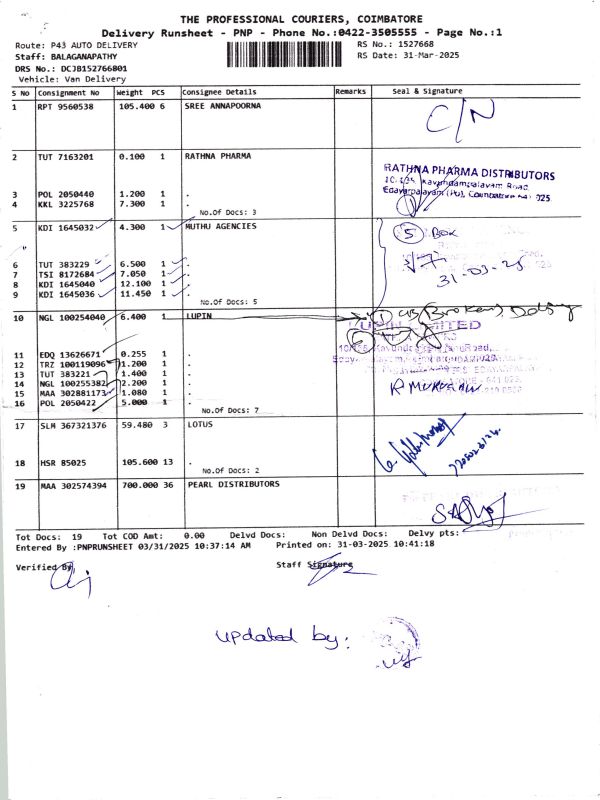 THE PROFESSIONAL COURIERS, COIMBATORE
Delivery Runsheet - PNP - Phone No.:0422-3505555 - Page No.:1
Route: P43 AUTO DELIVERY RS No.: 1527668
Staff: BALAGANAPATHY RS Date: 31-Mar-2025
DRS No.: DCJB152766801
Vehicle: Van Delivery
S No Consignment No Weight PCS Consignee Details Remarks Seal & Signature
1 RPT 9560538 105.400 6 SREE ANNAPOORNA
C/N
2 TUT 7163201 0.100 1 RATHNA PHARMA
RATHNA PHARMA DISTRIBUTORS
Kavundampalayam Road,
3 POL 2050440 1.200 1 .
Edayarpalayam (PO), Coimbatore 025
4 KKL 3225768 7.300 1 .
No.Of Docs: 3
5 KDI 1645032 4.300 1 MUTHU AGENCIES
5 Box
6 TUT 383229 6.500 1 .
7 TSI 8172684 7.050 1 .
31-03-25
8 KDI 1645040 12.100 1 .
9 KDI 1645036 11.450 1 .
No.Of Docs: 5
10 NGL 100254040 6.400 1 LUPIN
1 (Broken)
LUPIN LIMITED
11 EDQ 13626671 0.255 1 .
12 TRZ 100119096 1.200 1 .
13 TUT 383221 1.400 1 .
14 NGL 100255382 2.200 1 .
15 MAA 302881173 1.080 1 .
R MURUGAN
16 POL 2050422 5.000 1 .
No.Of Docs: 7
17 SLM 367321376 59.480 3 LOTUS
18 HSR 85025 105.600 13 .
No.Of Docs: 2
19 MAA 302574394 700.000 36 PEARL DISTRIBUTORS
Tot Docs: 19 Tot COD Amt: 0.00 Delvd Docs: Non Delvd Docs: Delvy pts:
Entered By :PNPRUNSHEET 03/31/2025 10:37:14 AM Printed on: 31-03-2025 10:41:18
Verified By Staff Signature
updated by: